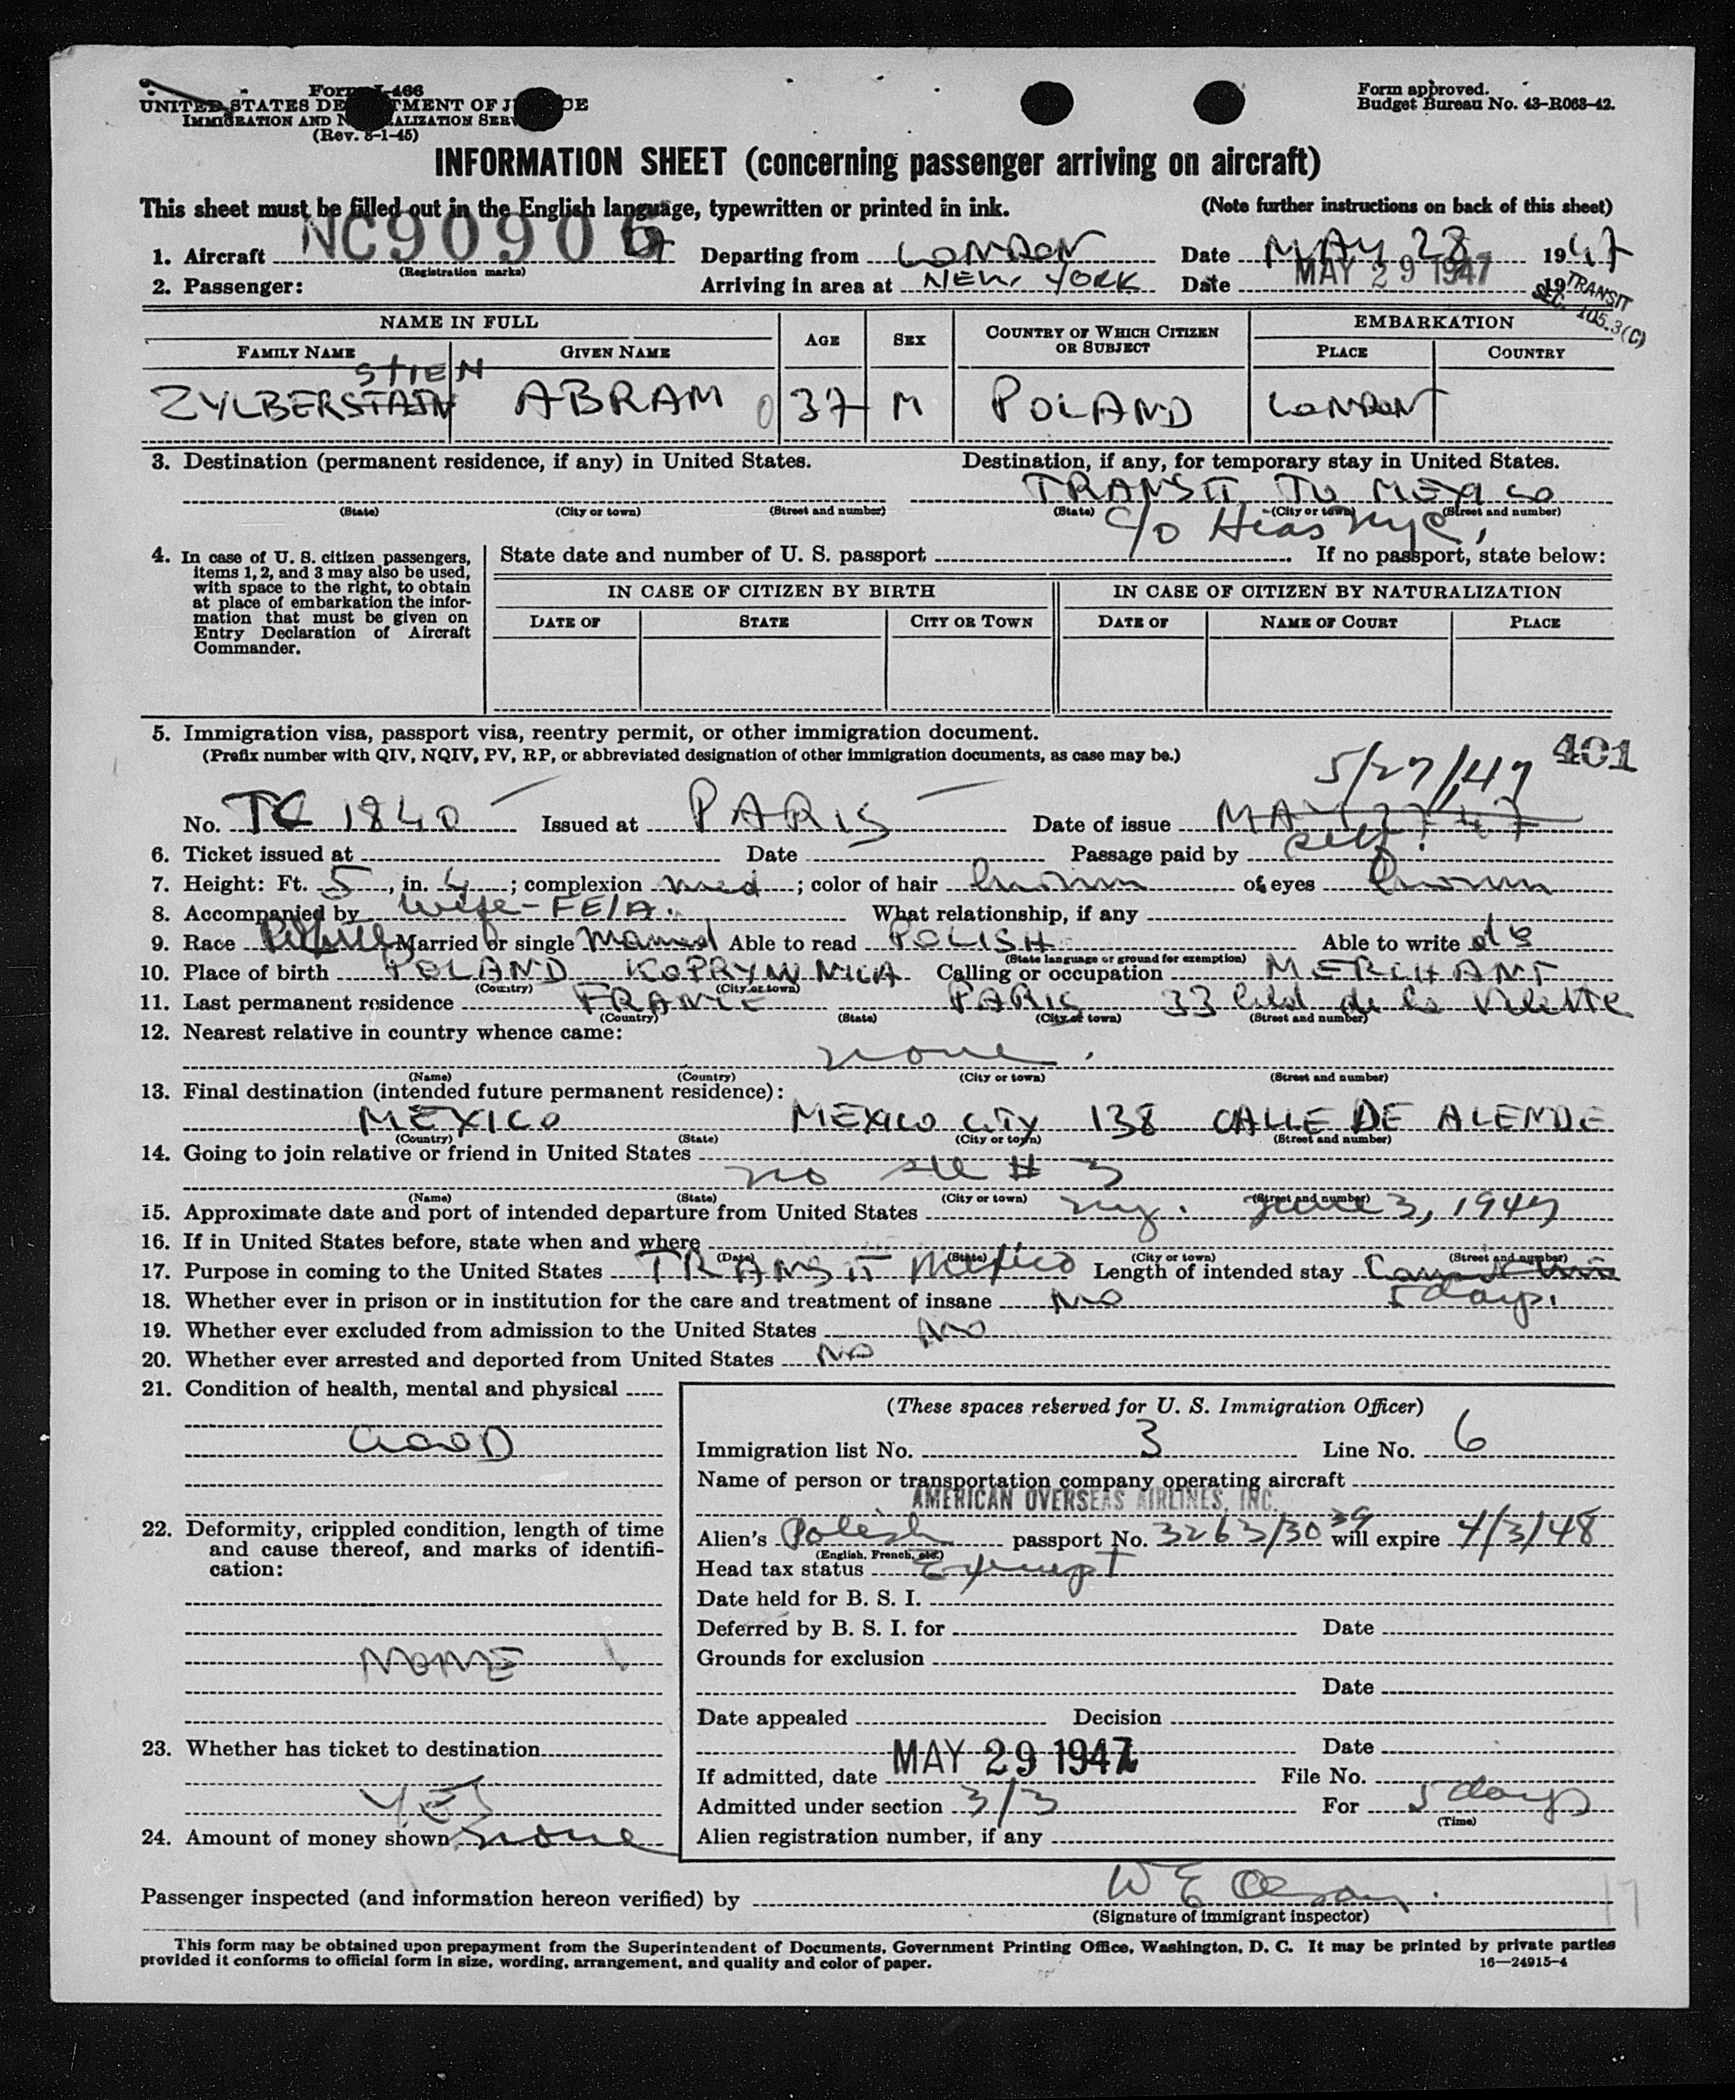 Form I-466
UNITED STATES DEPARTMENT OF JUSTICE
IMMIGRATION AND NATURALIZATION SERVICE
(Rev. 8-1-45)
Form approved.
Budget Bureau No. 43-R063-42.
INFORMATION SHEET (concerning passenger arriving on aircraft)
This sheet must be filled out in the English language, typewritten or printed in ink. (Note further instructions on back of this sheet)
1. Aircraft NC90906 Departing from LONDON Date MAY 28 1947
(Registration marks)
2. Passenger: Arriving in area at NEW YORK Date MAY 29 1947 19
TRANSIT
SEC. 105.3(C)
NAME IN FULL AGE SEX COUNTRY OF WHICH CITIZEN OR SUBJECT EMBARKATION
FAMILY NAME GIVEN NAME PLACE COUNTRY
STIEN
ZYLBERSTAJN ABRAM 0 37 M POLAND LONDON
3. Destination (permanent residence, if any) in United States. Destination, if any, for temporary stay in United States.
TRANSIT TO MEXICO
(State) (City or town) (Street and number) (State) (City or town) (Street and number)
c/o Hias NYC,
4. In case of U. S. citizen passengers, items 1, 2, and 3 may also be used, with space to the right, to obtain at place of embarkation the information that must be given on Entry Declaration of Aircraft Commander.
State date and number of U. S. passport If no passport, state below:
IN CASE OF CITIZEN BY BIRTH IN CASE OF CITIZEN BY NATURALIZATION
DATE OF STATE CITY OR TOWN DATE OF NAME OF COURT PLACE
5. Immigration visa, passport visa, reentry permit, or other immigration document.
(Prefix number with QIV, NQIV, PV, RP, or abbreviated designation of other immigration documents, as case may be.)
5/27/47 401
No. TC 1840 Issued at PARIS Date of issue MAY 27. 47
6. Ticket issued at Date Passage paid by self
7. Height: Ft. 5, in. 4; complexion med; color of hair brown of eyes brown
8. Accompanied by wife - FEJA. What relationship, if any
9. Race Married or single Married Able to read POLISH Able to write do
(State language or ground for exemption)
10. Place of birth POLAND KOPRYWNICA Calling or occupation MERCHANT
(Country) (City or town)
11. Last permanent residence FRANCE PARIS 33 blvd de la Villette
(Country) (State) (City or town) (Street and number)
12. Nearest relative in country whence came:
none.
(Name) (Country) (City or town) (Street and number)
13. Final destination (intended future permanent residence):
MEXICO MEXICO CITY 138 CALLE DE ALENDE
(Country) (State) (City or town) (Street and number)
14. Going to join relative or friend in United States
no see # 3
(Name) (State) (City or town) (Street and number)
15. Approximate date and port of intended departure from United States NY. June 3, 1947
16. If in United States before, state when and where
(Date) (State) (City or town) (Street and number)
17. Purpose in coming to the United States TRANSIT Mexico Length of intended stay
18. Whether ever in prison or in institution for the care and treatment of insane NO 5 days.
19. Whether ever excluded from admission to the United States NO
20. Whether ever arrested and deported from United States NO
21. Condition of health, mental and physical
GOOD
22. Deformity, crippled condition, length of time and cause thereof, and marks of identification:
NONE
23. Whether has ticket to destination
YES
24. Amount of money shown none
(These spaces reserved for U. S. Immigration Officer)
Immigration list No. 3 Line No. 6
Name of person or transportation company operating aircraft
AMERICAN OVERSEAS AIRLINES, INC.
Alien's Polish passport No. 3263/30 39 will expire 4/3/48
(English, French, etc.)
Head tax status Exempt
Date held for B. S. I.
Deferred by B. S. I. for Date
Grounds for exclusion
Date
Date appealed Decision
Date
If admitted, date MAY 29 1947 File No.
Admitted under section 3/3 For 5 days
(Time)
Alien registration number, if any
Passenger inspected (and information hereon verified) by W E Olson.
(Signature of immigrant inspector)
This form may be obtained upon prepayment from the Superintendent of Documents, Government Printing Office, Washington, D. C. It may be printed by private parties
provided it conforms to official form in size, wording, arrangement, and quality and color of paper. 16—24915-4